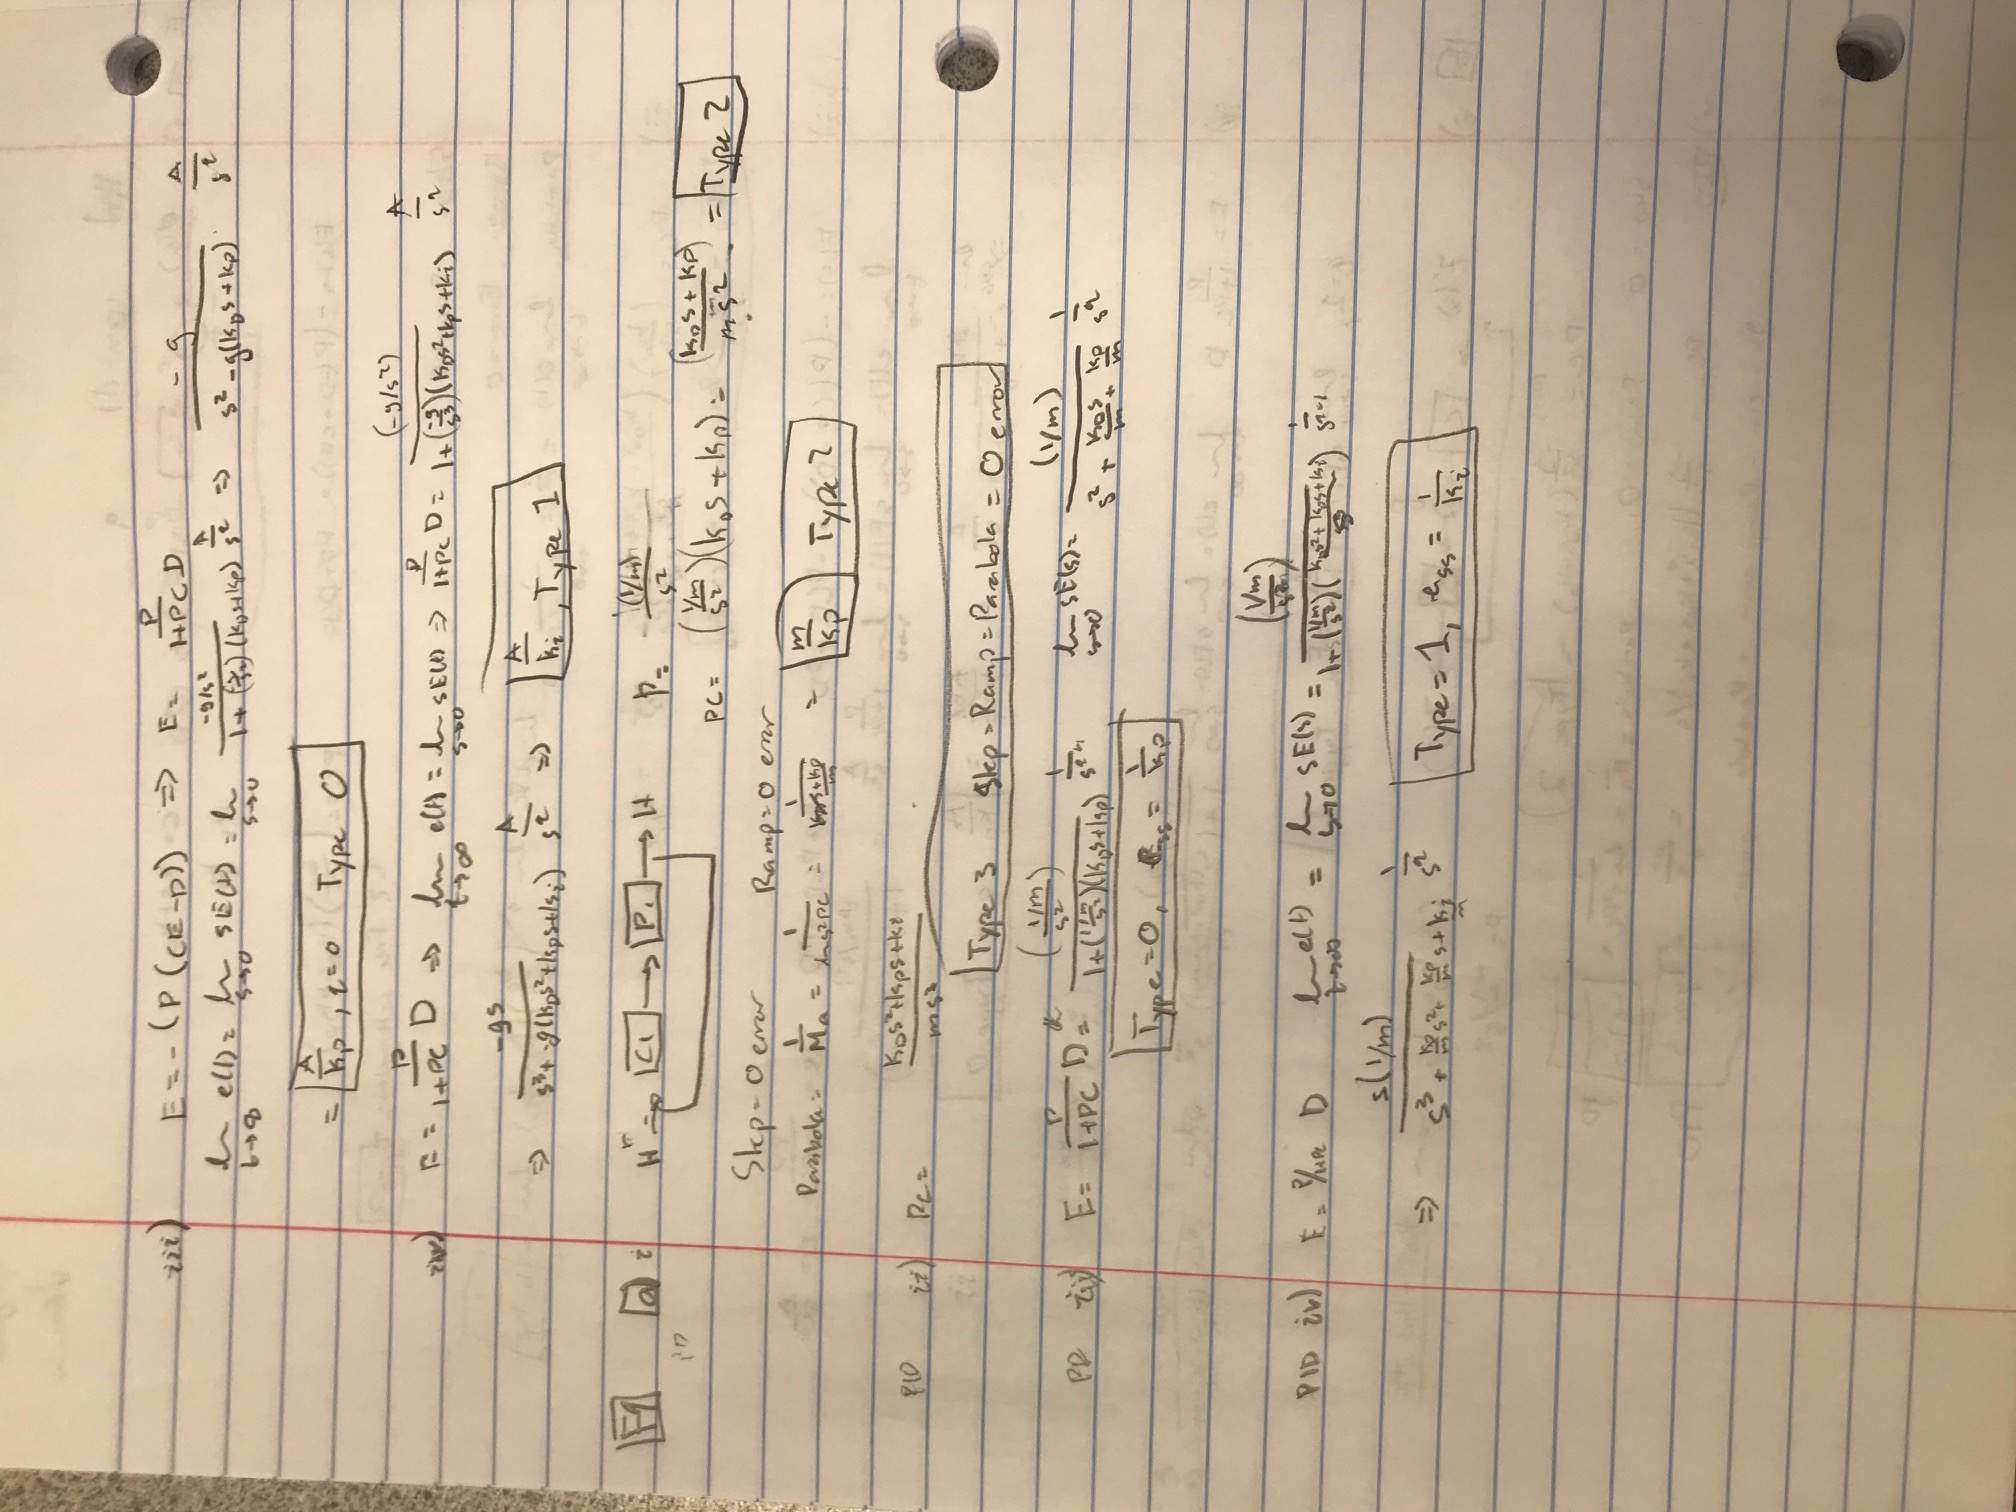 iii) E = -(P(CE-D)) ⇒ E = P/(1+PC) D
lim t→∞ e(t) = lim s→0 sE(s) = lim s→0 (-g/s²)/(1+(-g/s²)(k_D s+k_p)) A/s^q ⇒ -g/(s²-g(k_D s+k_p)) · A/s^q
= A/k_p, q=0 Type 0
iv) E = P/(1+PC) D ⇒ lim t→∞ e(t) = lim s→0 sE(s) ⇒ P/(1+PC) D = (-g/s²)/(1+(-g/s³)(k_D s²+k_p s+k_i)) A/s^q
⇒ -gs/(s³+-g(k_D s²+k_p s+k_i)) A/s^q ⇒ A/k_i, Type 1
F9 a) i H^r → C1 → P1 → H P = (1/m)/s²
PC = (1/m/s²)(k_D s+k_p) = (k_D s+k_p)/(m s²) = Type 2
Step = 0 error Ramp = 0 error
Parabola = 1/Ma = 1/(lim s²PC) = 1/((k_D s+k_p)/m) = m/k_p Type 2
PID ii) PC = (k_D s²+k_p s+k_i)/(m s³)
Type 3 Step = Ramp = Parabola = 0 error
PD iii) E = P/(1+PC) D = ((1/m)/s²)/(1+((1/m)/s²)(k_D s+k_p)) 1/s^(q+1) lim s→0 sE(s) = (1/m)/(s²+(k_D s)/m+k_p/m) 1/s^q
Type = 0, e_ss = 1/k_p
PID iv) E = P/1+PC D lim t→∞ e(t) = lim s→0 sE(s) = ((1/m)/s²)/(1+((1/m)/s²)((k_D s²+k_p s+k_i)/s)) 1/s^(q+1)
⇒ s(1/m)/(s³+(k_D/m)s²+(k_p/m)s+k_i/m) 1/s^q Type = 1, e_ss = 1/k_i